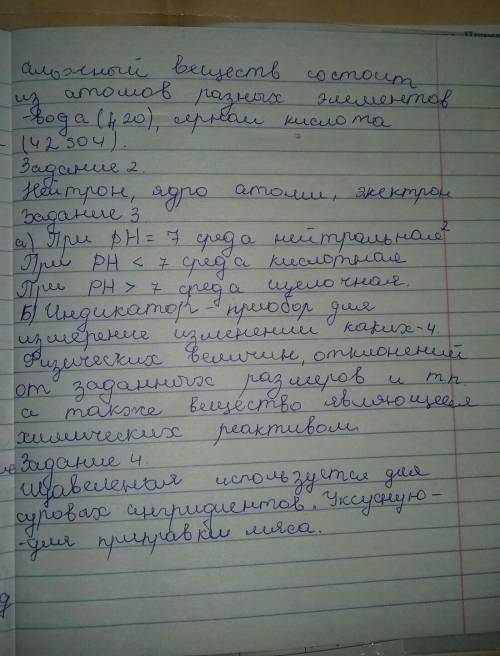 сложный веществ состоит
из атомов разных элементов
-вода (H20), серная кислота
(42 S04).
Задание 2.
Нейтрон, ядро атома, электрон
Задание 3
а) При pH = 7 среда нейтральная 2
При PH < 7 среда кислотная
При PH > 7 среда щелочная.
Б) Индикатор - прибор для
измерение изменении каких-л.
Физических величин, отклонений
от заданных размеров и тп.
а также вещество являющееся
химических реактивом.
Задание 4.
Щавеленыя используется для
суровых ингридиентов. Уксусную-
-для приправки мяса.